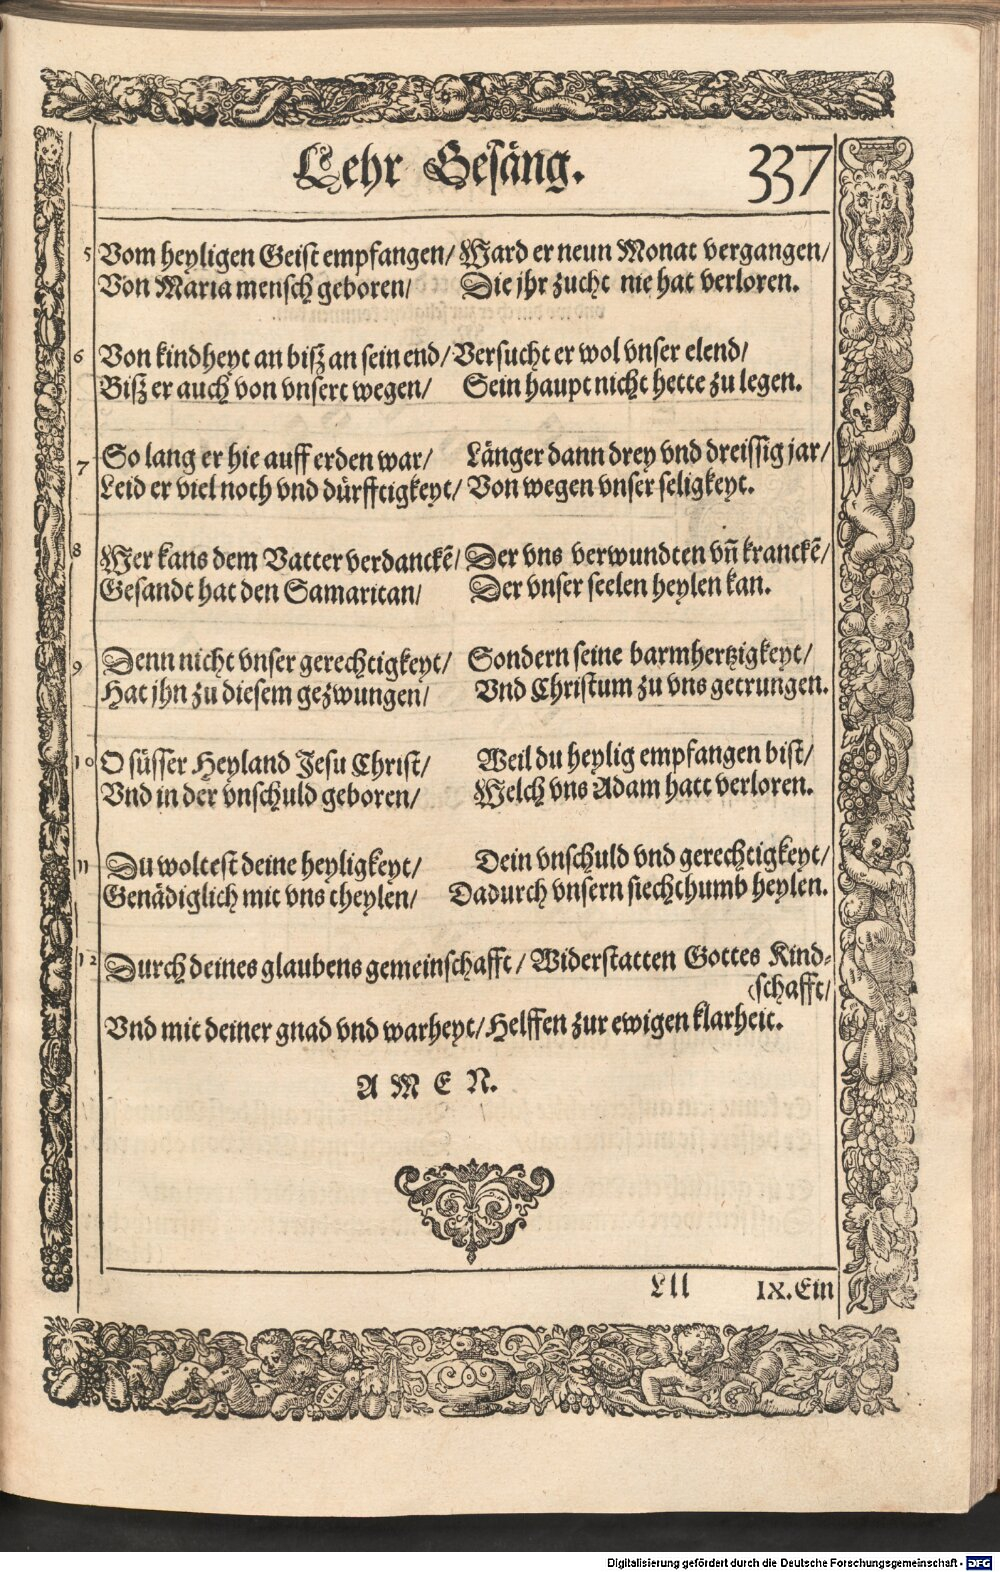 Lehr Gesäng. 337
5 Vom heyligen Geist empfangen/ Ward er neun Monat vergangen/
Von Maria mensch geboren/ Die jhr zucht nie hat verloren.
6 Von kindheyt an bisz an sein end/ Versucht er wol vnser elend/
Bisz er auch von vnsert wegen/ Sein haupt nicht hette zu legen.
7 So lang er hie auff erden war/ Länger dann drey vnd dreissig jar/
Leid er viel noth vnd dürfftigkeyt/ Von wegen vnser seligkeyt.
8 Wer kans dem Vatter verdanckē/ Der vns verwundten vñ kranckē/
Gesandt hat den Samaritan/ Der vnser seelen heylen kan.
9 Denn nicht vnser gerechtigkeyt/ Sondern seine barmhertzigkeyt/
Hat jhn zu diesem gezwungen/ Vnd Christum zu vns getrungen.
10 O süsser Heyland Jesu Christ/ Weil du heylig empfangen bist/
Vnd in der vnschuld geboren/ Welch vns Adam hatt verloren.
11 Du woltest deine heyligkeyt/ Dein vnschuld vnd gerechtigkeyt/
Genädiglich mit vns theylen/ Dadurch vnsern siechthumb heylen.
12 Durch deines glaubens gemeinschafft/ Widerstatten Gottes Kind-
(schafft/
Vnd mit deiner gnad vnd warheyt/ Helffen zur ewigen klarheit.
A M E N.
Lll IX. Ein
Digitalisierung gefördert durch die Deutsche Forschungsgemeinschaft - DFG